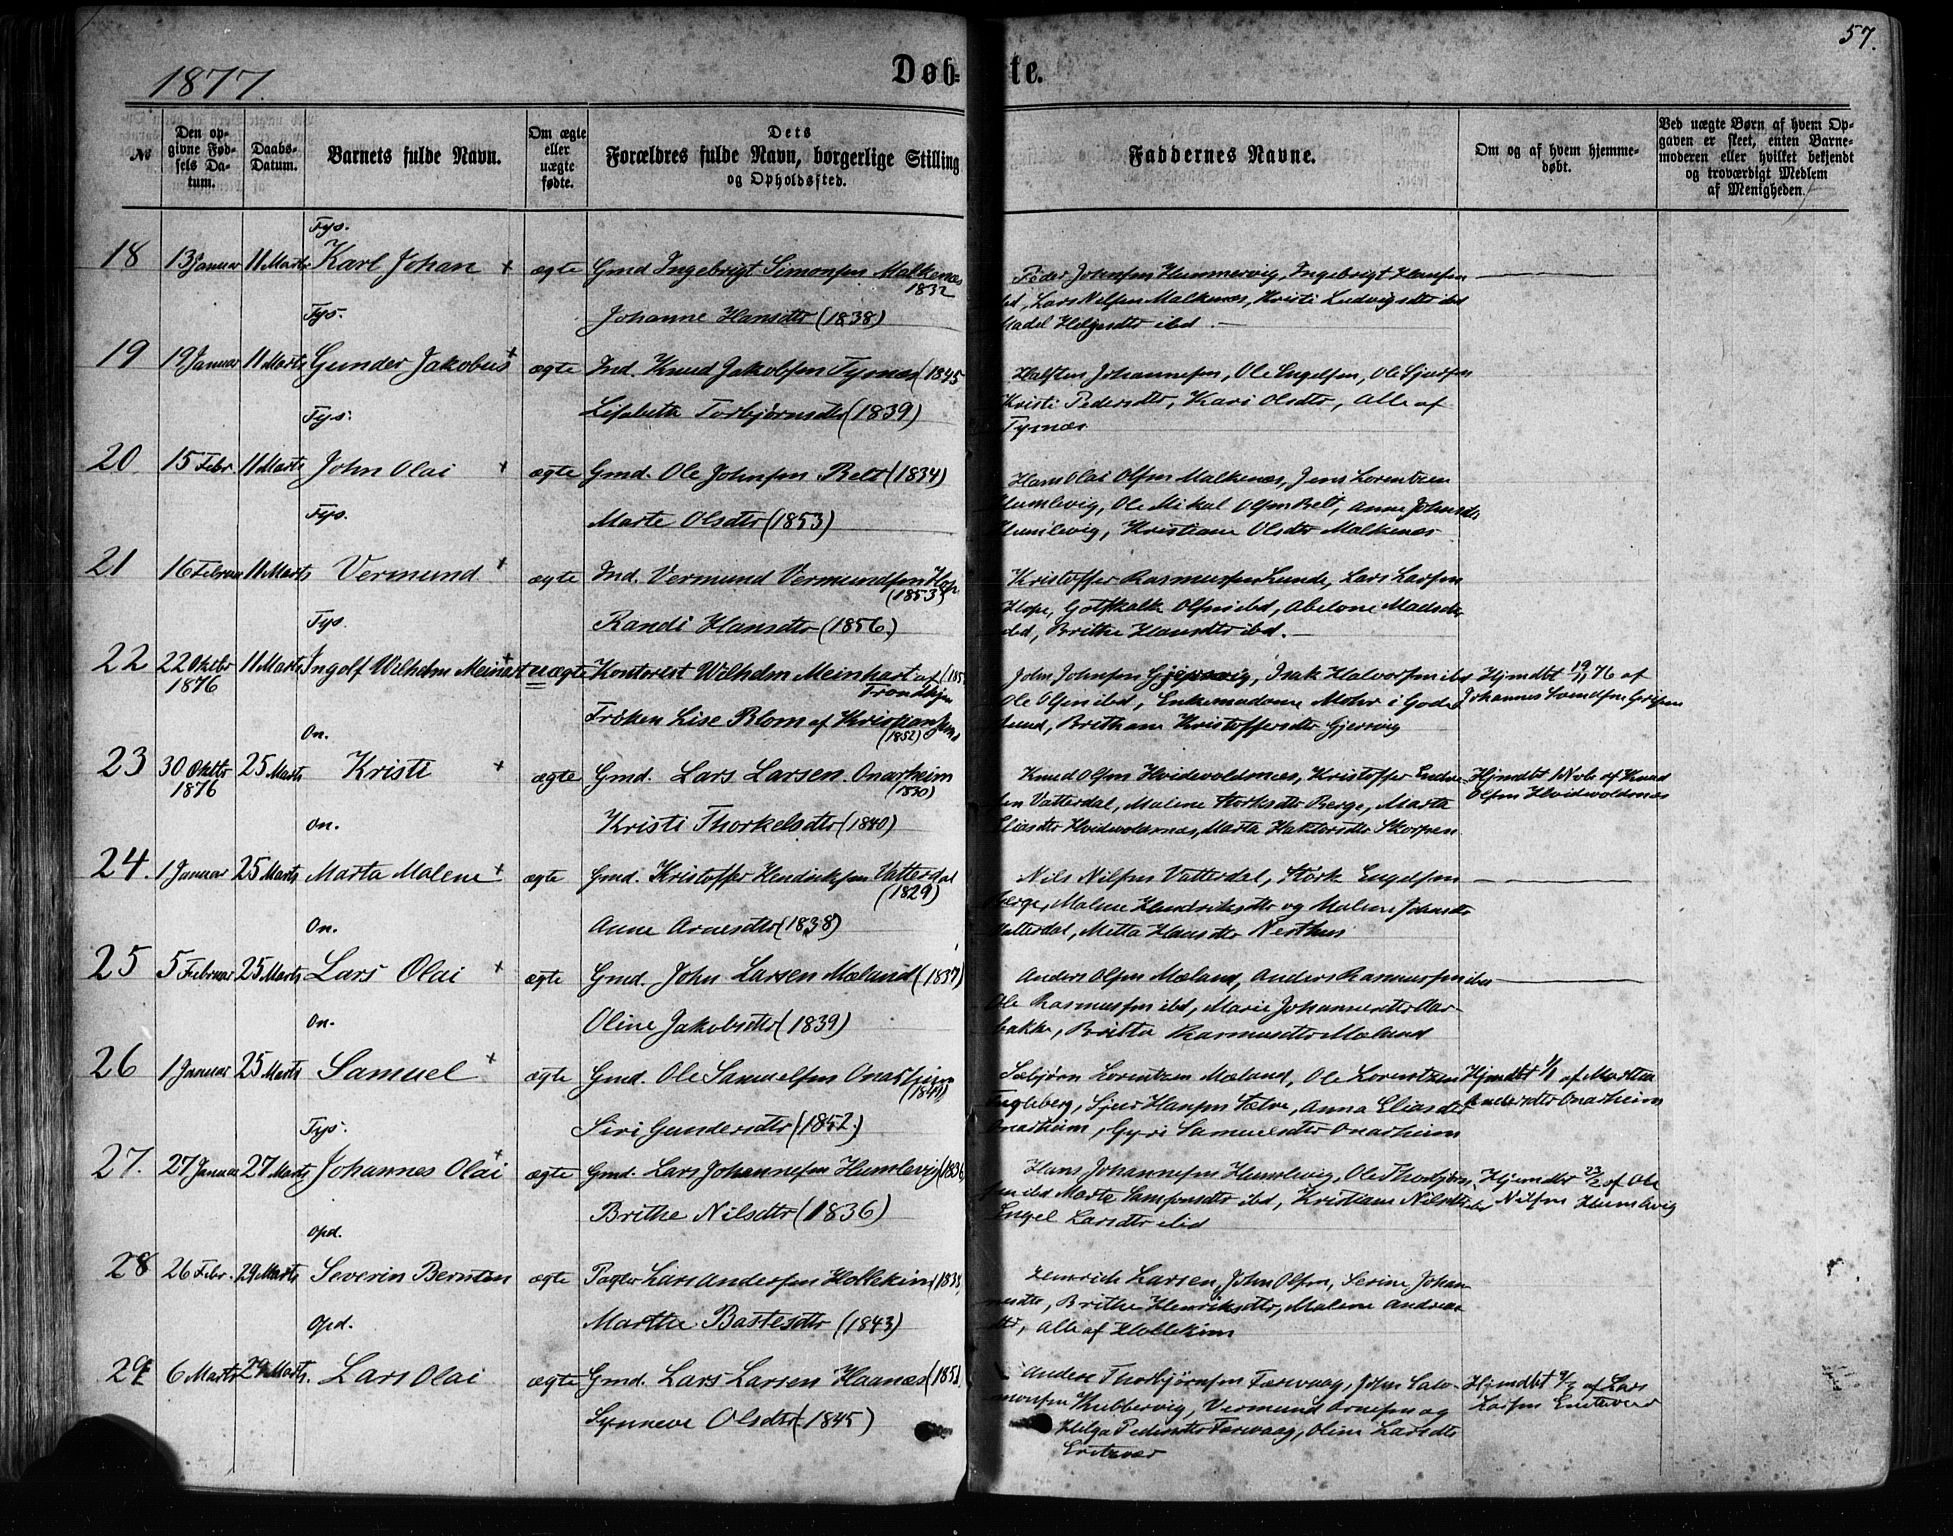 57.
1877.
Døb=te.
№
Den op-
givne Fød-
sels Da-
tum.
Daabs-
Datum.
Barnets fulde Navn.
Om ægte
eller
uægte
fødte.
Dets
Forældres fulde Navn, borgerlige Stilling
og Opholdssted.
Faddernes Navne.
Om og af hvem hjemme-
døbt.
Ved uægte Børn af hvem Op-
gaven er skeet, enten Barne-
moderen eller hvilket bekjendt
og troværdigt Medlem
af Menigheden.
Tys.
18 13 Januar 11 Marts Karl Johan + ægte Gmd Ingebrigt Simonsen Malkenæs
1832
Johanne Hansdtr (1838)
Peder Johnsen Hummervig, Ingebrigt Hansen
ibd, Lars Nilsen Malkenæs, Kristi Ludvigsdtr ibd
Madel Helgesdtr ibd. —
Tys.
19 19 Januar 11 Marts Gunder Jakobus + ægte Ind. Knud Jakobsen Tysnæs (1845
Lisabeta Torbjørnsdtr (1839)
Halsten Johannesen, Ole Engelsen, Ole Sjursen
Kristi Pedersdtr, Kari Olsdtr, Alle af
Tysnæs
Tys.
20 15 Febr. 11 Marts John Olai + ægte Gmd. Ole Johnsen Belt (1834)
Marte Olsdtr (1853)
Hans Olai Olsen Malkenæs, Jens Lorentzen
Humlevig, Ole Mikal Olsen Belt, Anne Johnsdtr
Humlevig, Kristiane Olsdtr Malkenæs
Tys.
21 16 Februar 11 Marts Vermund + ægte Ind. Vermund Vermundsen Hope
(1853)
Randi Hansdtr (1856)
Kristoffer Rasmussen Lunde, Lars Larsen
Hope, Gotskalk Olsen ibd, Abelone Madsdtr
ibd, Brithe Hansdtr ibd. —
Tys.
22 22 Oktbr 11 Marts Ingolf Wilhelm Meinart + uægte Kontorist Wilhelm Meinhart af
1876
Trondhjem
Frøken Lise Blom af Kristianssund
(1852)
John Johnsen Gjersvig, Isak Halvorsen ibd
Ole Olsen ibd, Enkemadame Mohr i Gode-
sund, Brithane Kristoffersdtr Gjersvig
Hjmdbt 19/11 76 af
Johannes Svendsen
On.
23 30 Oktbr 25 Marts Kristi + ægte Gmd. Lars Larsen Onarheim
1876
(1830)
Kristi Thorkelsdtr (1840)
Knud Olsen Hvidevoldsnæs, Kristoffer Endre-
sen Vatterdal, Malene Størksdtr Berge, Marta
Eliasdtr Hvidevoldsnæs, Marta Skorpen
Hjmdbt 1 Nvbr af Knud
Olsen Hvidevoldsnæs
On.
24. 1 Januar 25 Marts Marta Malene + ægte Gmd. Kristoffer Hendriksen Vatterdal
(1829)
Anne Arnesdtr (1838)
Nils Nilsen Vatterdal, Størk Engelsen
Berge, Malene Hendriksdtr og Malene Johnsdtr
Vatterdal, Metta Hansdtr Nesthus
On.
25 5 Februar 25 Marts Lars Olai + ægte Gmd. John Larsen Mæland (1837)
Oline Jakobsdtr (1839)
Anders Olsen Mæland, Anders Rasmussen ibd
Ole Rasmussen ibd, Marie Johannesdtr Aar-
bakke, Britta Rasmusdtr Mæland
On.
26 1 Januar 25 Marts Samuel + ægte Gmd. Ole Samuelsen Onarheim
(1849)
Siri Gundersdtr (1852)
Sæbjørn Lorentzen Mæland, Ole Lorentzen
Tveteberg, Sjur Hansen Sælve, Anna Eliasdtr
Onarheim, Gyri Samuelsdtr Onarheim
Hjmdbt 1/1 af Martha
Andersdtr Onarheim
Tys.
27. 27 Januar 27 Marts Johannes Olai + ægte Gmd. Lars Johannesen Humlevig (1836)
Brithe Nilsdtr (1836)
Hans Johannesen Humlevig, Ole Thorbjørn-
sen ibd Marte Samsonsdtr ibd, Kristiane Nilsdtr ibd
Engel Larsdtr ibid
Hjemdbt 23/2 af Ole
Nilsen Humlevig
Opd.
28 26 Febr. 29 Marts Severin Berntin ægte Pagter Lars Andersen Hollekim
Marthe Bastesdtr (1843)
Henrich Larsen, John Olsen, Serine Johan-
nesdtr, Brithe Henriksdtr, Malene Andreas-
dtr, Alle af Hollekim
Opd.
29 6 Marts 29 Marts. Lars Olai ægte Gmd. Lars Larsen Haanæs
Synneve Olsdtr (1845)
Anders Thorbjørnsen Færevaag, John Salo-
monsen Kubbervig, Vermund Arnesen og
Helga Pedersdtr Færevaag, Oline Larsdtr
Enitevær
Hjmdbt af Lars
Larsen Enitevær